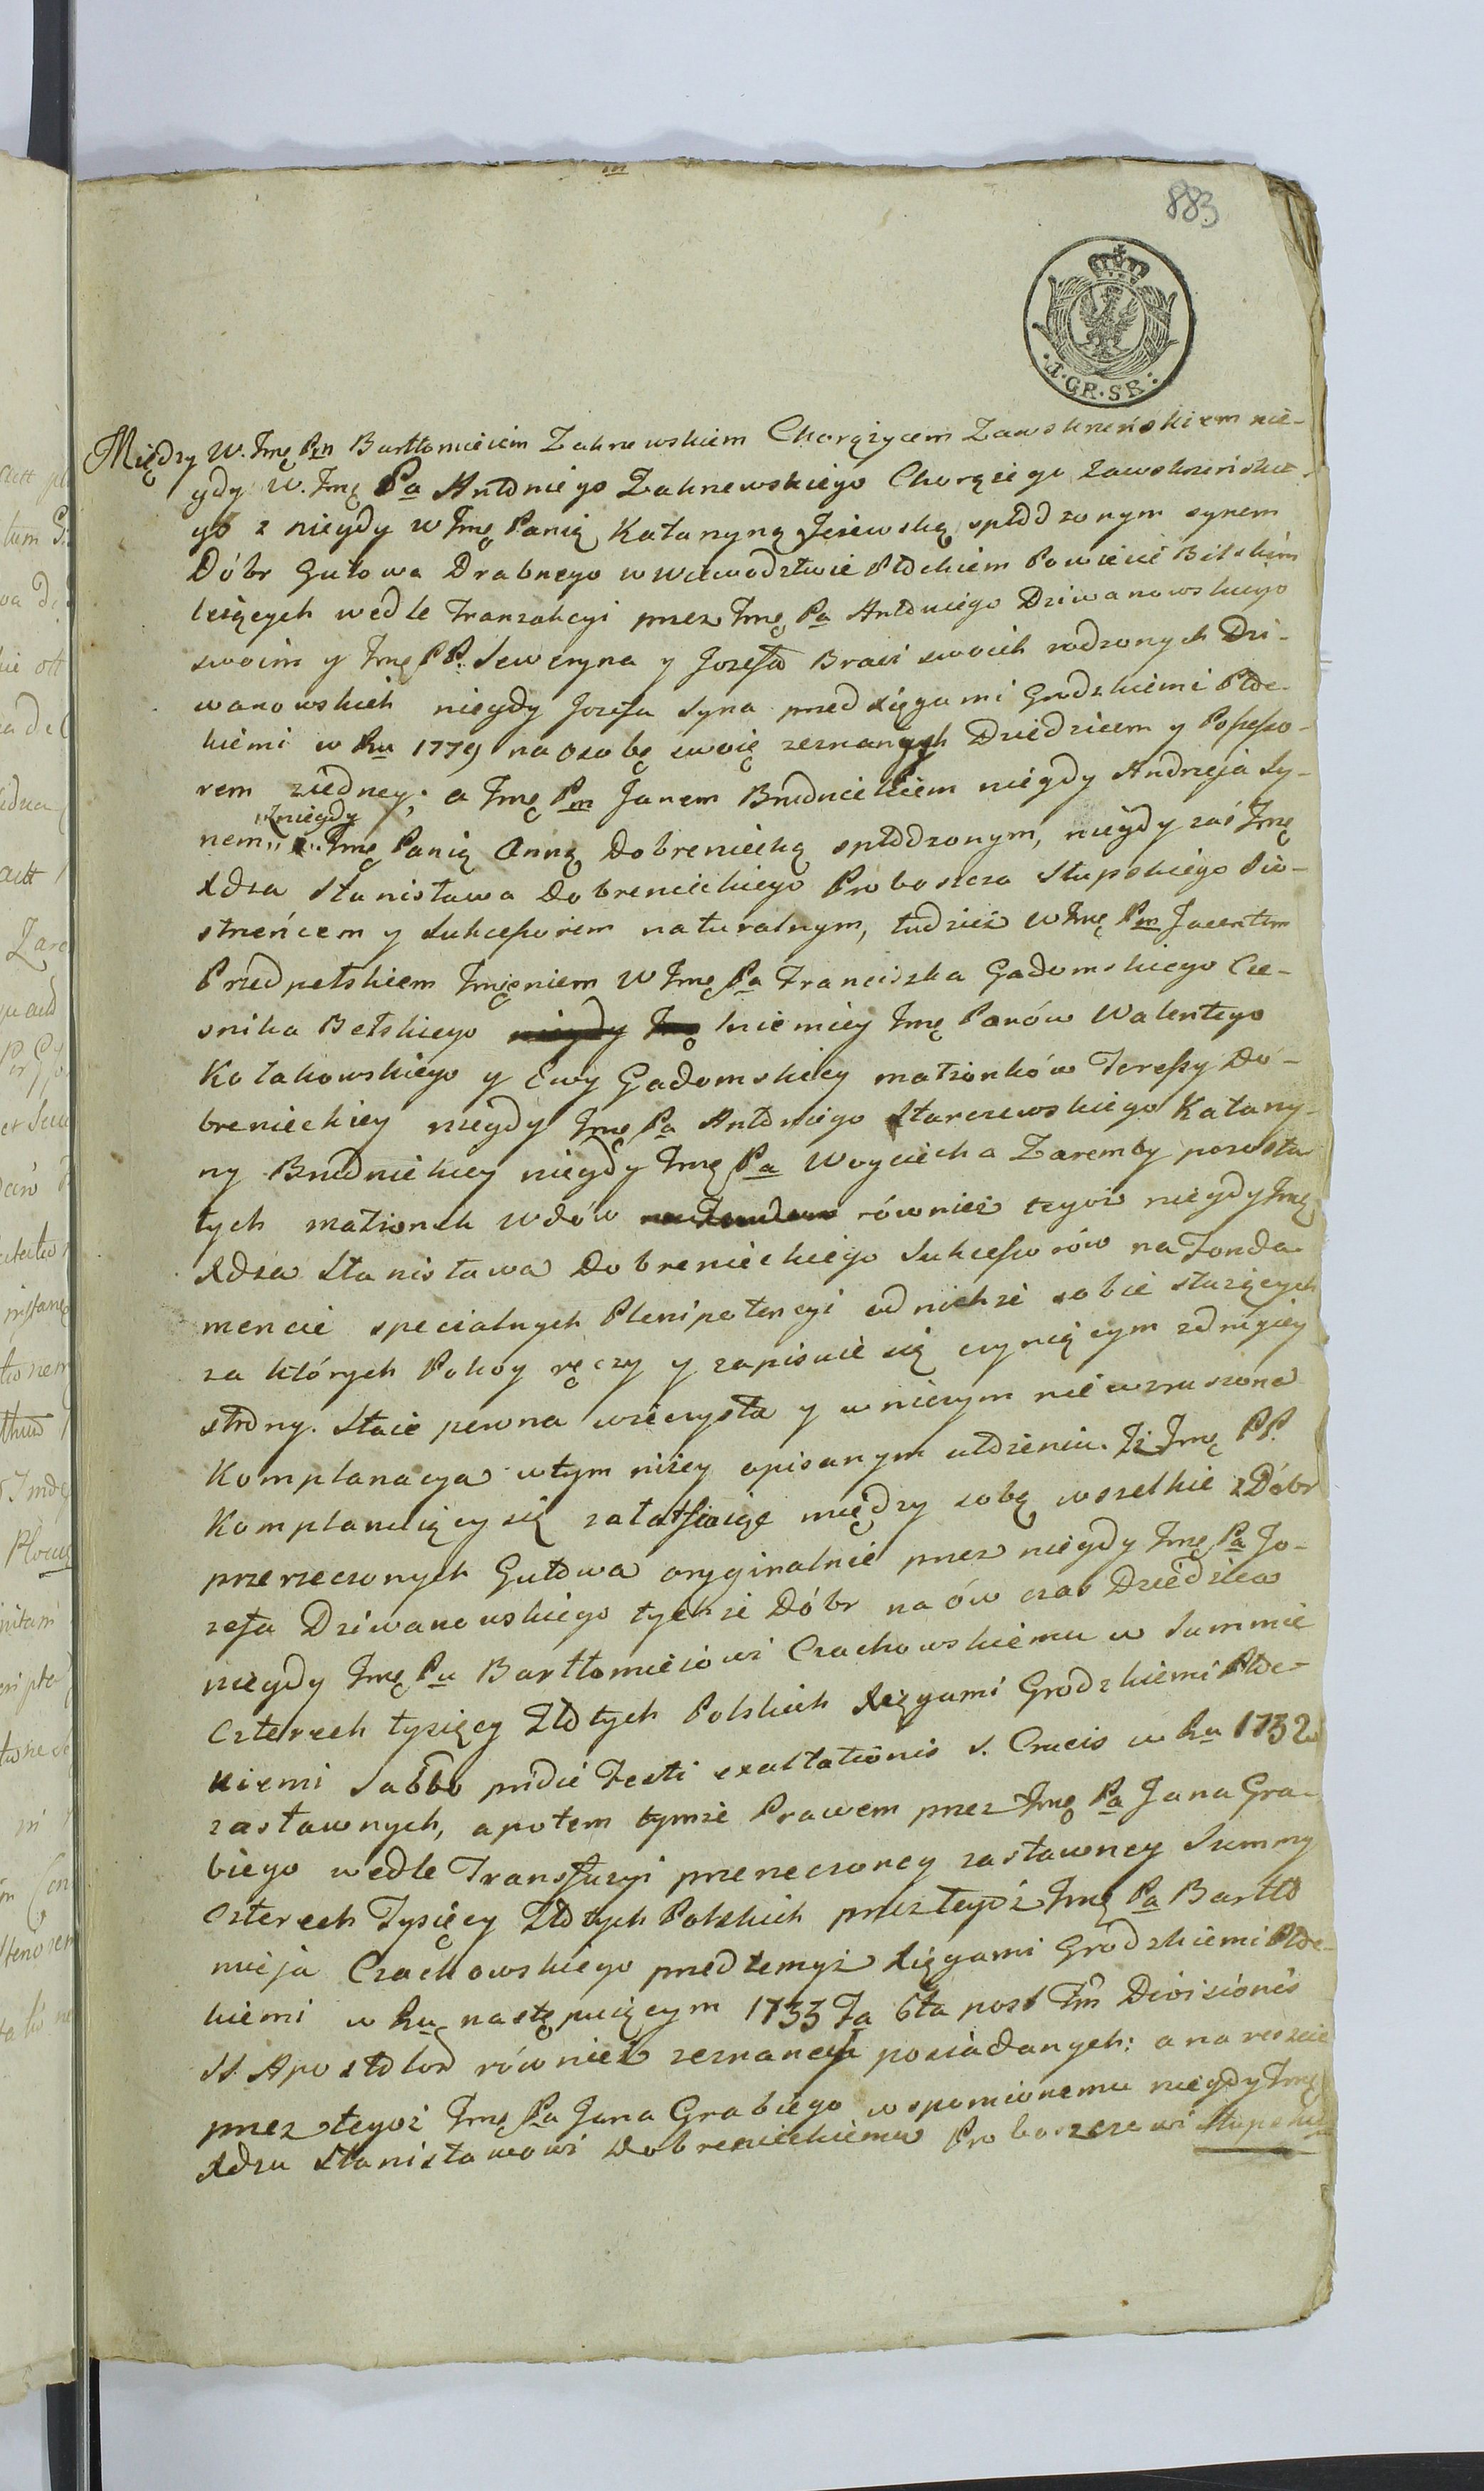 883
I·GR·SR:
Między W. Jmę Pm Bartłomieiem Zakrzewskiem Chorążycem Zawskrzeńskiem nie-
gdy W. Jmę Pa Antoniego Zakrzewskiego Chorążego Zawskrzeńskie-
go z niegdy W Jmę Panią Katarzyną Jeżewską spłodzonym synem
Dóbr Gutowa Drabnego w Wdewodztwie Płockiem Powiecie Bilskim
leżących wedle Tranzakcyi przez Jmę Pa Antoniego Dziwanowskiego
swoim y Jmę PP. Seweryna y Jozefa Braci swoich rodzonych Dzi-
wanowskich niegdy Jozefa Syna przed xięgami Grodzkiemi Płoc-
kiemi w Ru 1779 na osobę swoię zeznanych Dziedzicem y Possesso-
rem ziedney; a Jmę Pm Janem Brudnickiem niegdy Andrzeja Sy-
nem z niegdy Jmę Panią Anną Dobrzeniecką spłodzonym, niegdy zaś Jmę
Xdza Stanisława Dobrenieckiego Proboszcza Słupskiego Sio-
strzeńcem y Sukcessorem naturalnym, tudzież W Jmę Pm Jacentym
Przedpełskiem Imieniem W Jmę Pa Franciszka Gadomskiego Cze-
snika Bełskiego niegdy Jmę tudzież Jmę Panów Walentego
Kołakowskiego y Ewy Gadomskiey małżonków Teressy Do-
brenieckiey niegdy Jmę Pa Antoniego Starczewskiego Katarzy-
ny Brudnickiey niegdy Jmę Pa Woyciecha Zaremby pozosta-
łych małżonek wdów również tegoż niegdy Jmę
Xdza Stanisława Dobrenieckiego Sukcessorów na Fonda-
mencie specialnych Plenipotencyi od nichże sobie służących
za których Pokoy ręczy y zapisuie się czyniącym z drugiey
strony. Staie pewna wieczysta y w niczym niewzruszona
Komplanacya w tym niżey opisanym ułożeniu. Iż Jmę PP.
Komplanuiący się załatwiaiąc między sobą wszelkie z Dóbr
przerzeczonych Gutowa oryginalnie przez niegdy Jmę Pa Jo-
zefa Dziwanowskiego tychże Dóbr na ów czas Dziedzica
niegdy Jmę Pu Bartłomieiowi Czachowskiemu w Summie
Czterech tysięcy Złotych Polskich Xięgami Grodzkiemi Płoc-
kiemi Sabbo pridie Festi exaltationis S. Crucis w Ru 1732
zastawnych, a potem tymże Prawem przez Jmę Pa Jana Gra-
biego wedle Transfuzyi przerzeczoney zastawney Summy
Czterech Tysięcy Złotych Polskich przez tegoż Jmę Pa Bartło-
mieja Czachowskiego przed temyż xięgami Grodzkiemi Płoc-
kiemi w Ru następuiącym 1733 Fa 6ta post Fm Divisionis
SS. Apostolor również zeznaney posiadanych: a na reszcie
przez tegoż Jmę Pa Jana Grabiego wspomionemu niegdy Jmę
Xdzu Stanisławowi Dobrenieckiemu Proboszczowi Słupskie